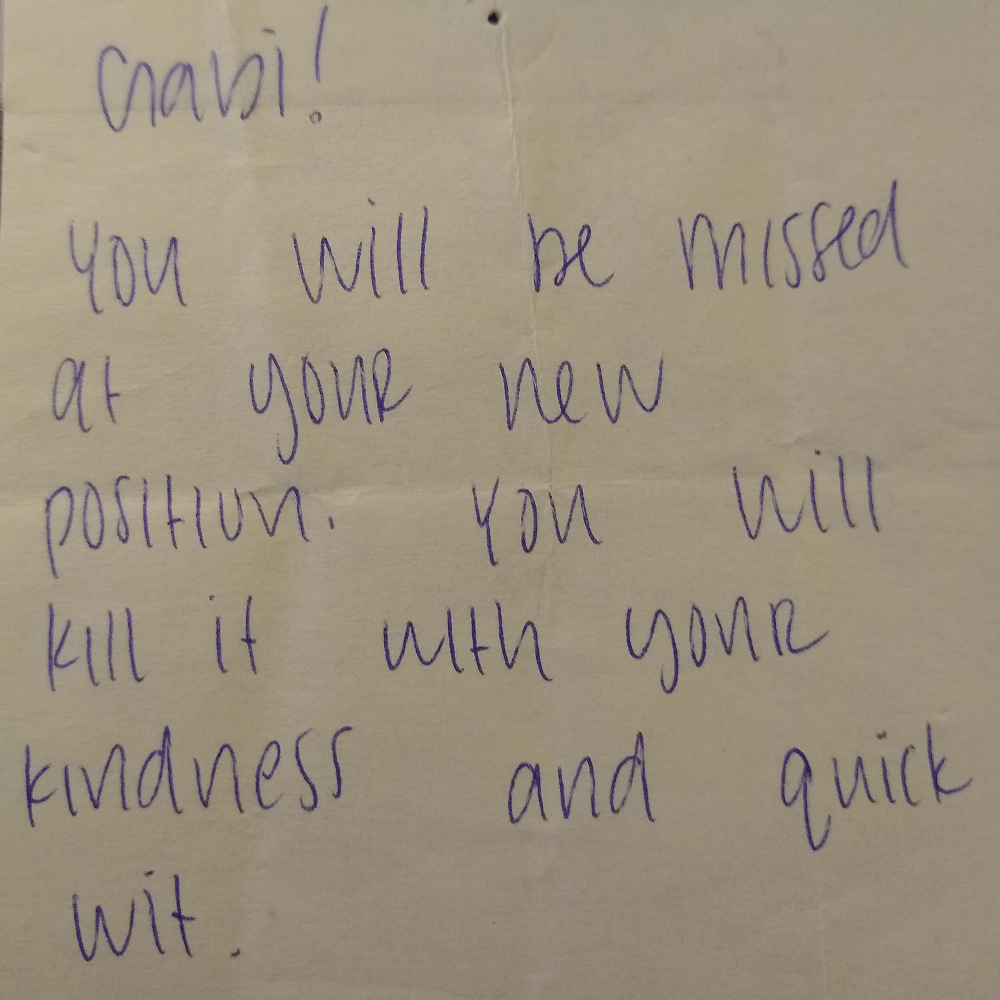 Gabi!
You will be missed
at your new
position. You will
kill it with your
kindness and quick
wit.